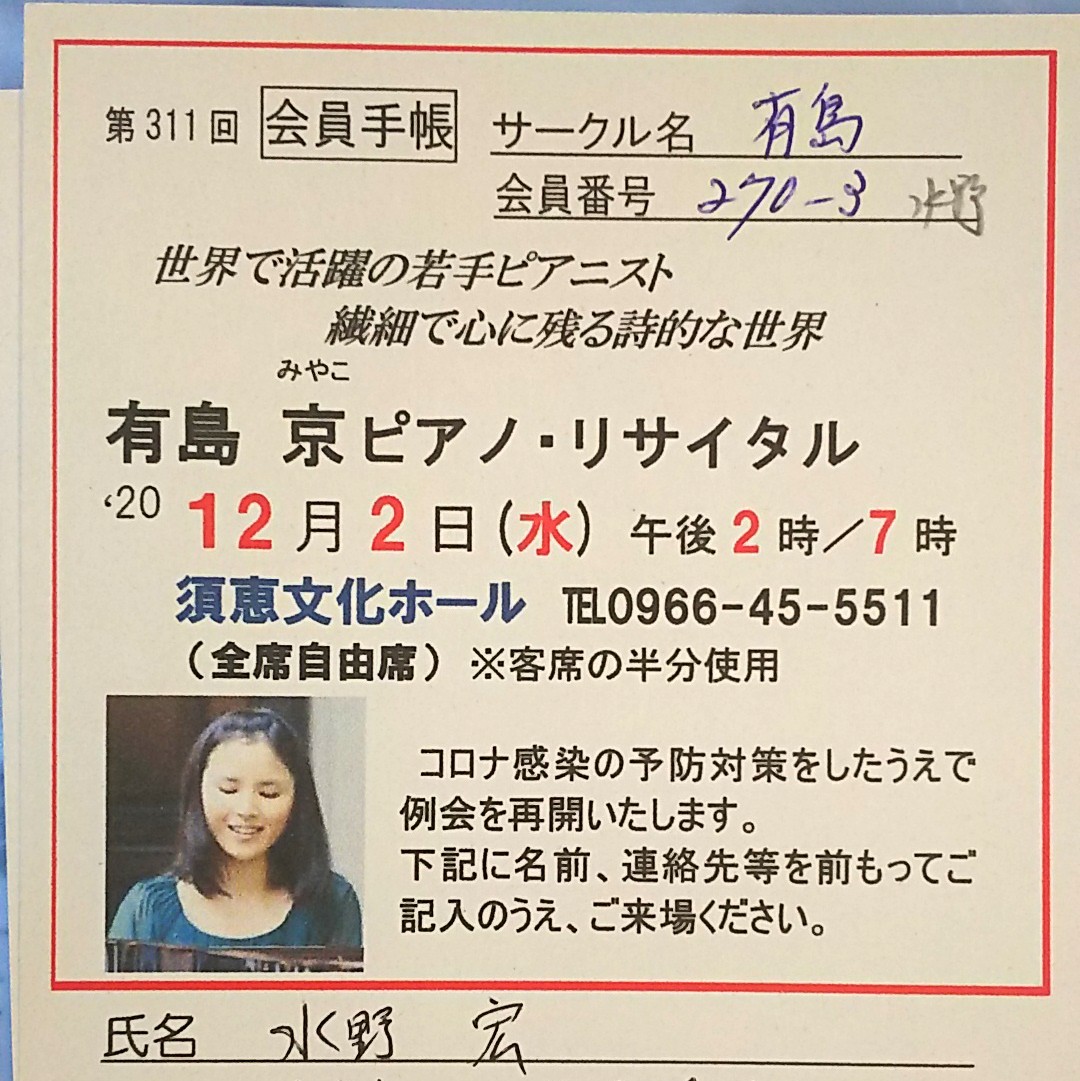 第311回 会員手帳 サークル名 有島
会員番号 270-3 水野
世界で活躍の若手ピアニスト
繊細で心に残る詩的な世界
みやこ
有島 京ピアノ・リサイタル
‘20 12月2日(水) 午後2時/7時
須恵文化ホール ℡0966-45-5511
(全席自由席)※客席の半分使用
コロナ感染の予防対策をしたうえで
例会を再開いたします。
下記に名前、連絡先等を前もってご
記入のうえ、ご来場ください。
氏名 水野 宏